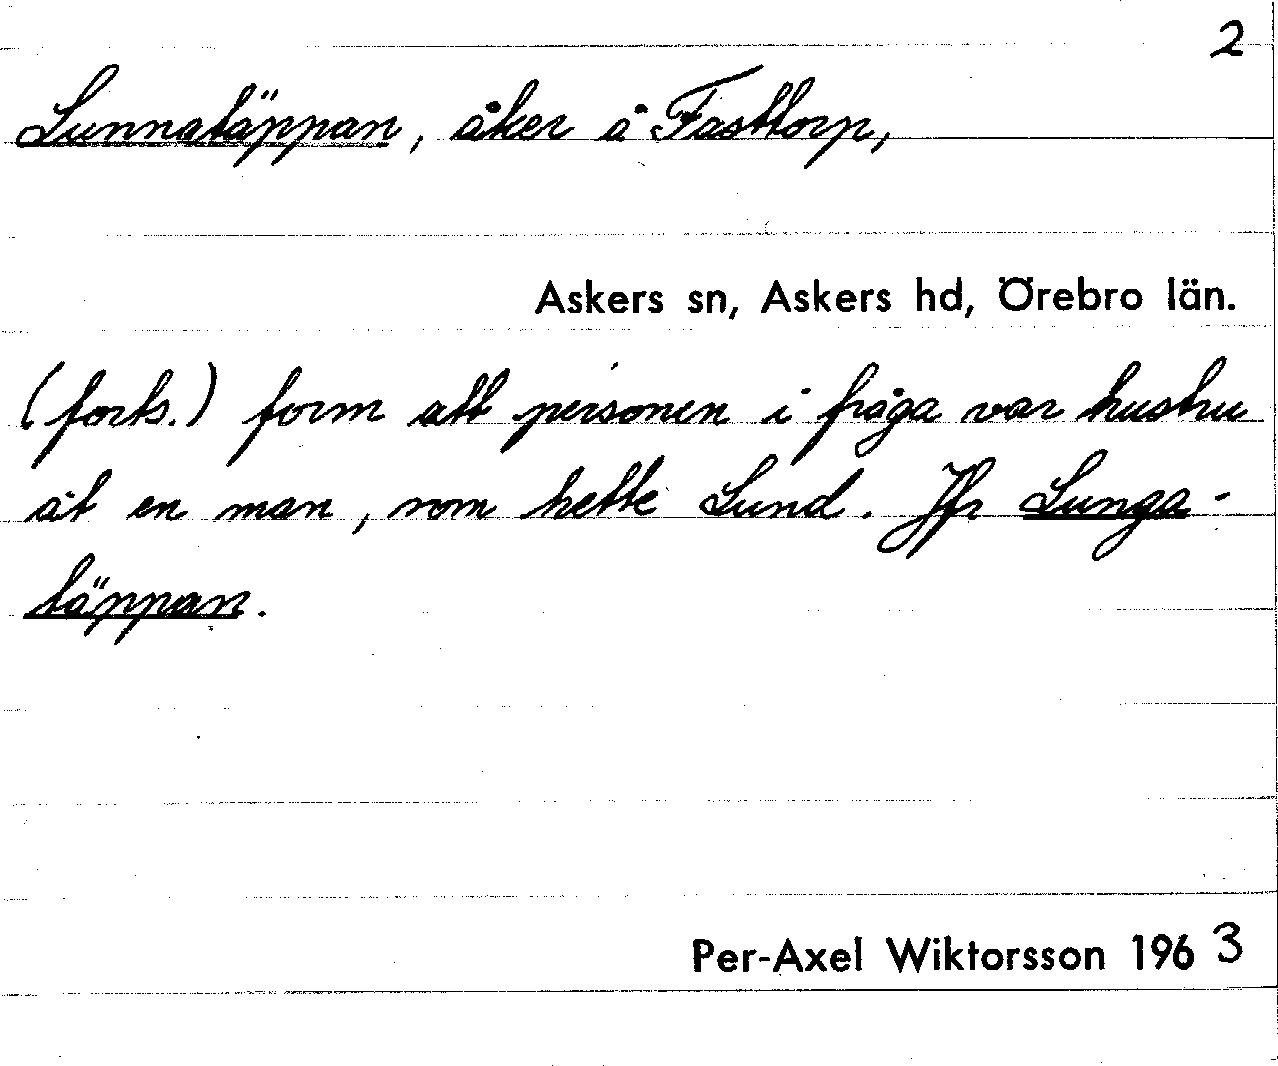 2
Lunnatäppan, åker å Fasttorp,
Askers sn, Askers hd, Örebro län.
(forts.) form att personen i fråga var hustru
åt en man, som hette Lund. Jfr Lunga-
täppan.
Per-Axel Wiktorsson 1963